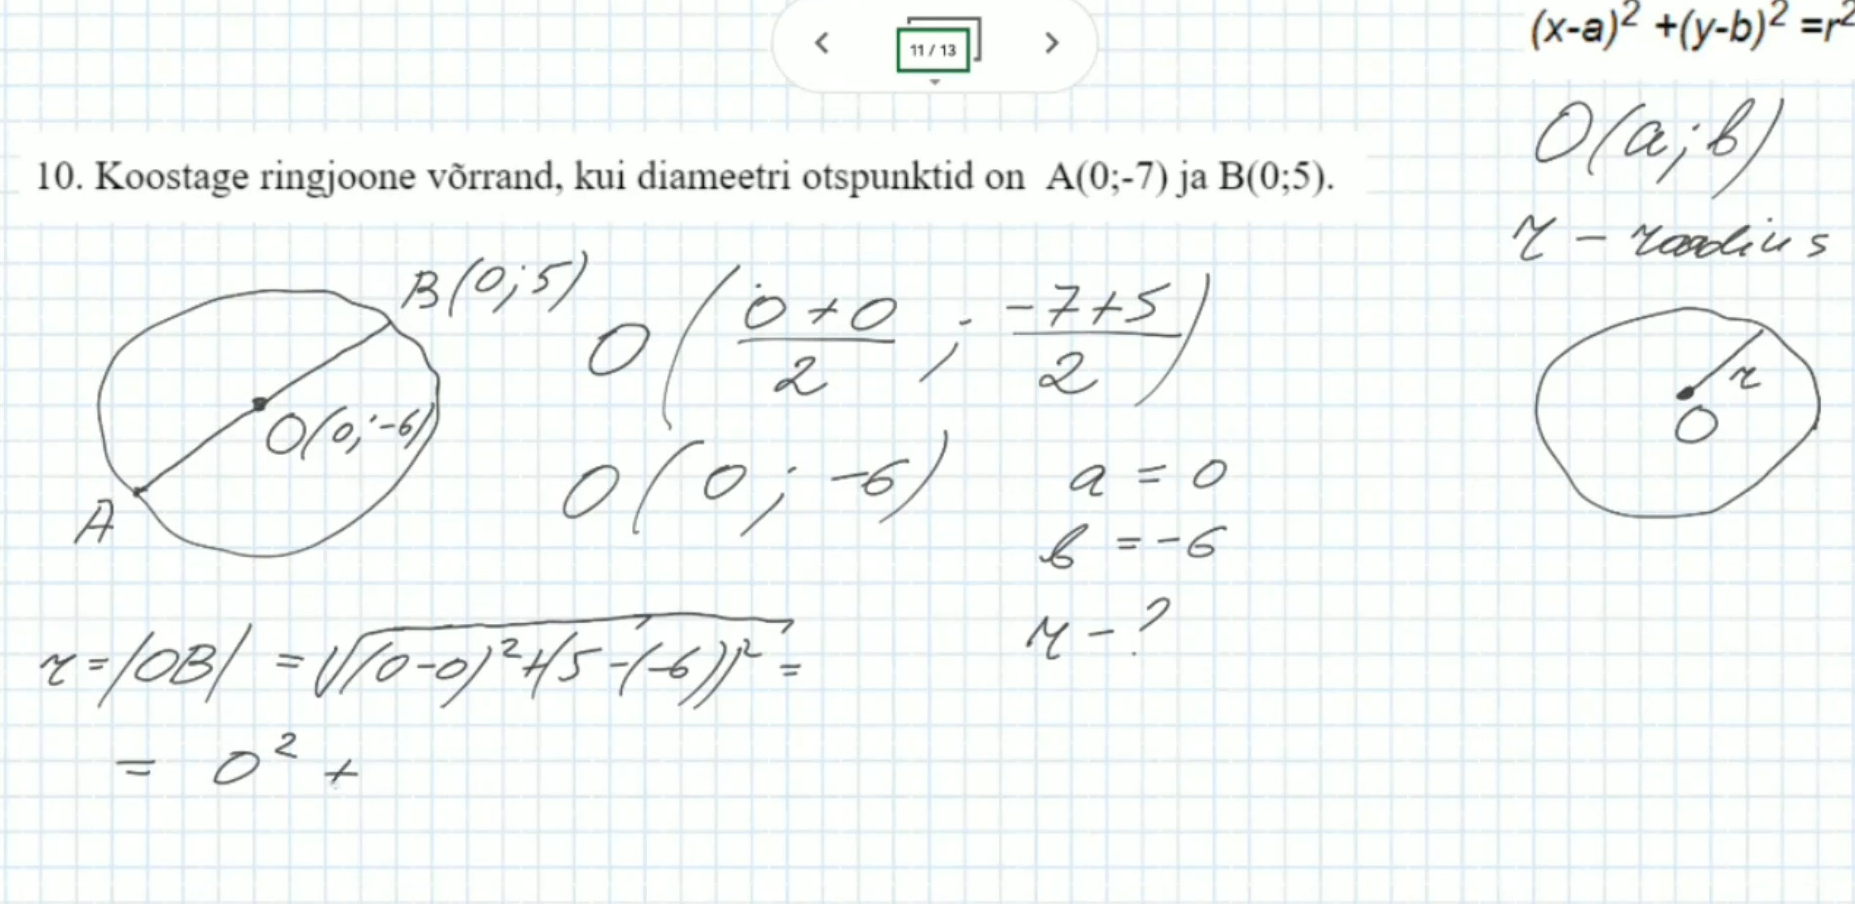 11 / 13
(x-a)² +(y-b)² =r²
O(a;b)
r – raadius
10. Koostage ringjoone võrrand, kui diameetri otspunktid on A(0;-7) ja B(0;5).
B(0;5)
O(0;-6)
A
O((0+0)/2 ; (-7+5)/2)
O(0 ; -6)
a = 0
b = -6
r – ?
r
O
r = |OB| = √((0-0)²+(5-(-6))²) =
= 0² +